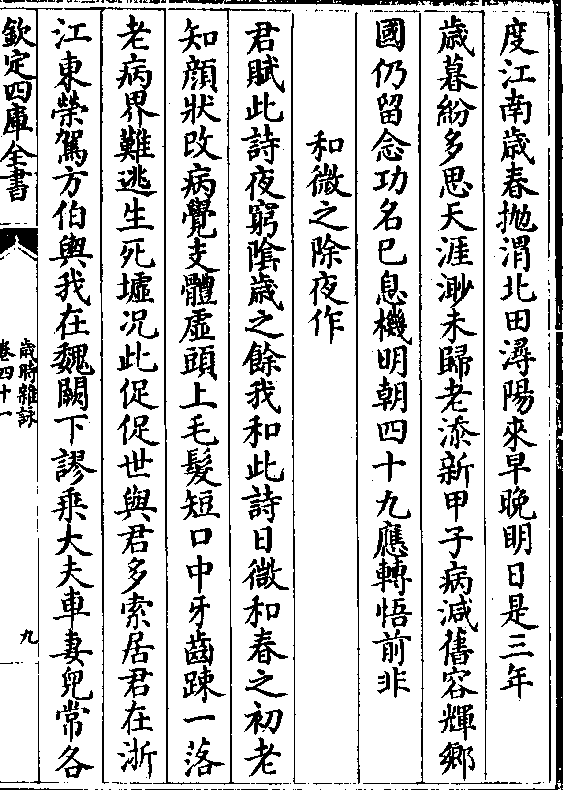 度江南歳春抛渭北田潯陽來早晚明日是三年
歳暮紛多思天涯渺未歸老添新甲子病減舊容輝鄉
國仍留念功名已息機明朝四十九應轉悟前非
和微之除夜作
君賦此詩夜窮隂歳之餘我和此詩日微和春之初老
知顔狀改病覺支體虚頭上毛髮短口中牙齒踈一落
老病界難逃生死墟况此促促世與君多索居君在浙
江東榮駕方伯輿我在魏闕下謬乗大夫車妻兒常各
欽定四庫全書
歳時雜詠
卷四十一
九